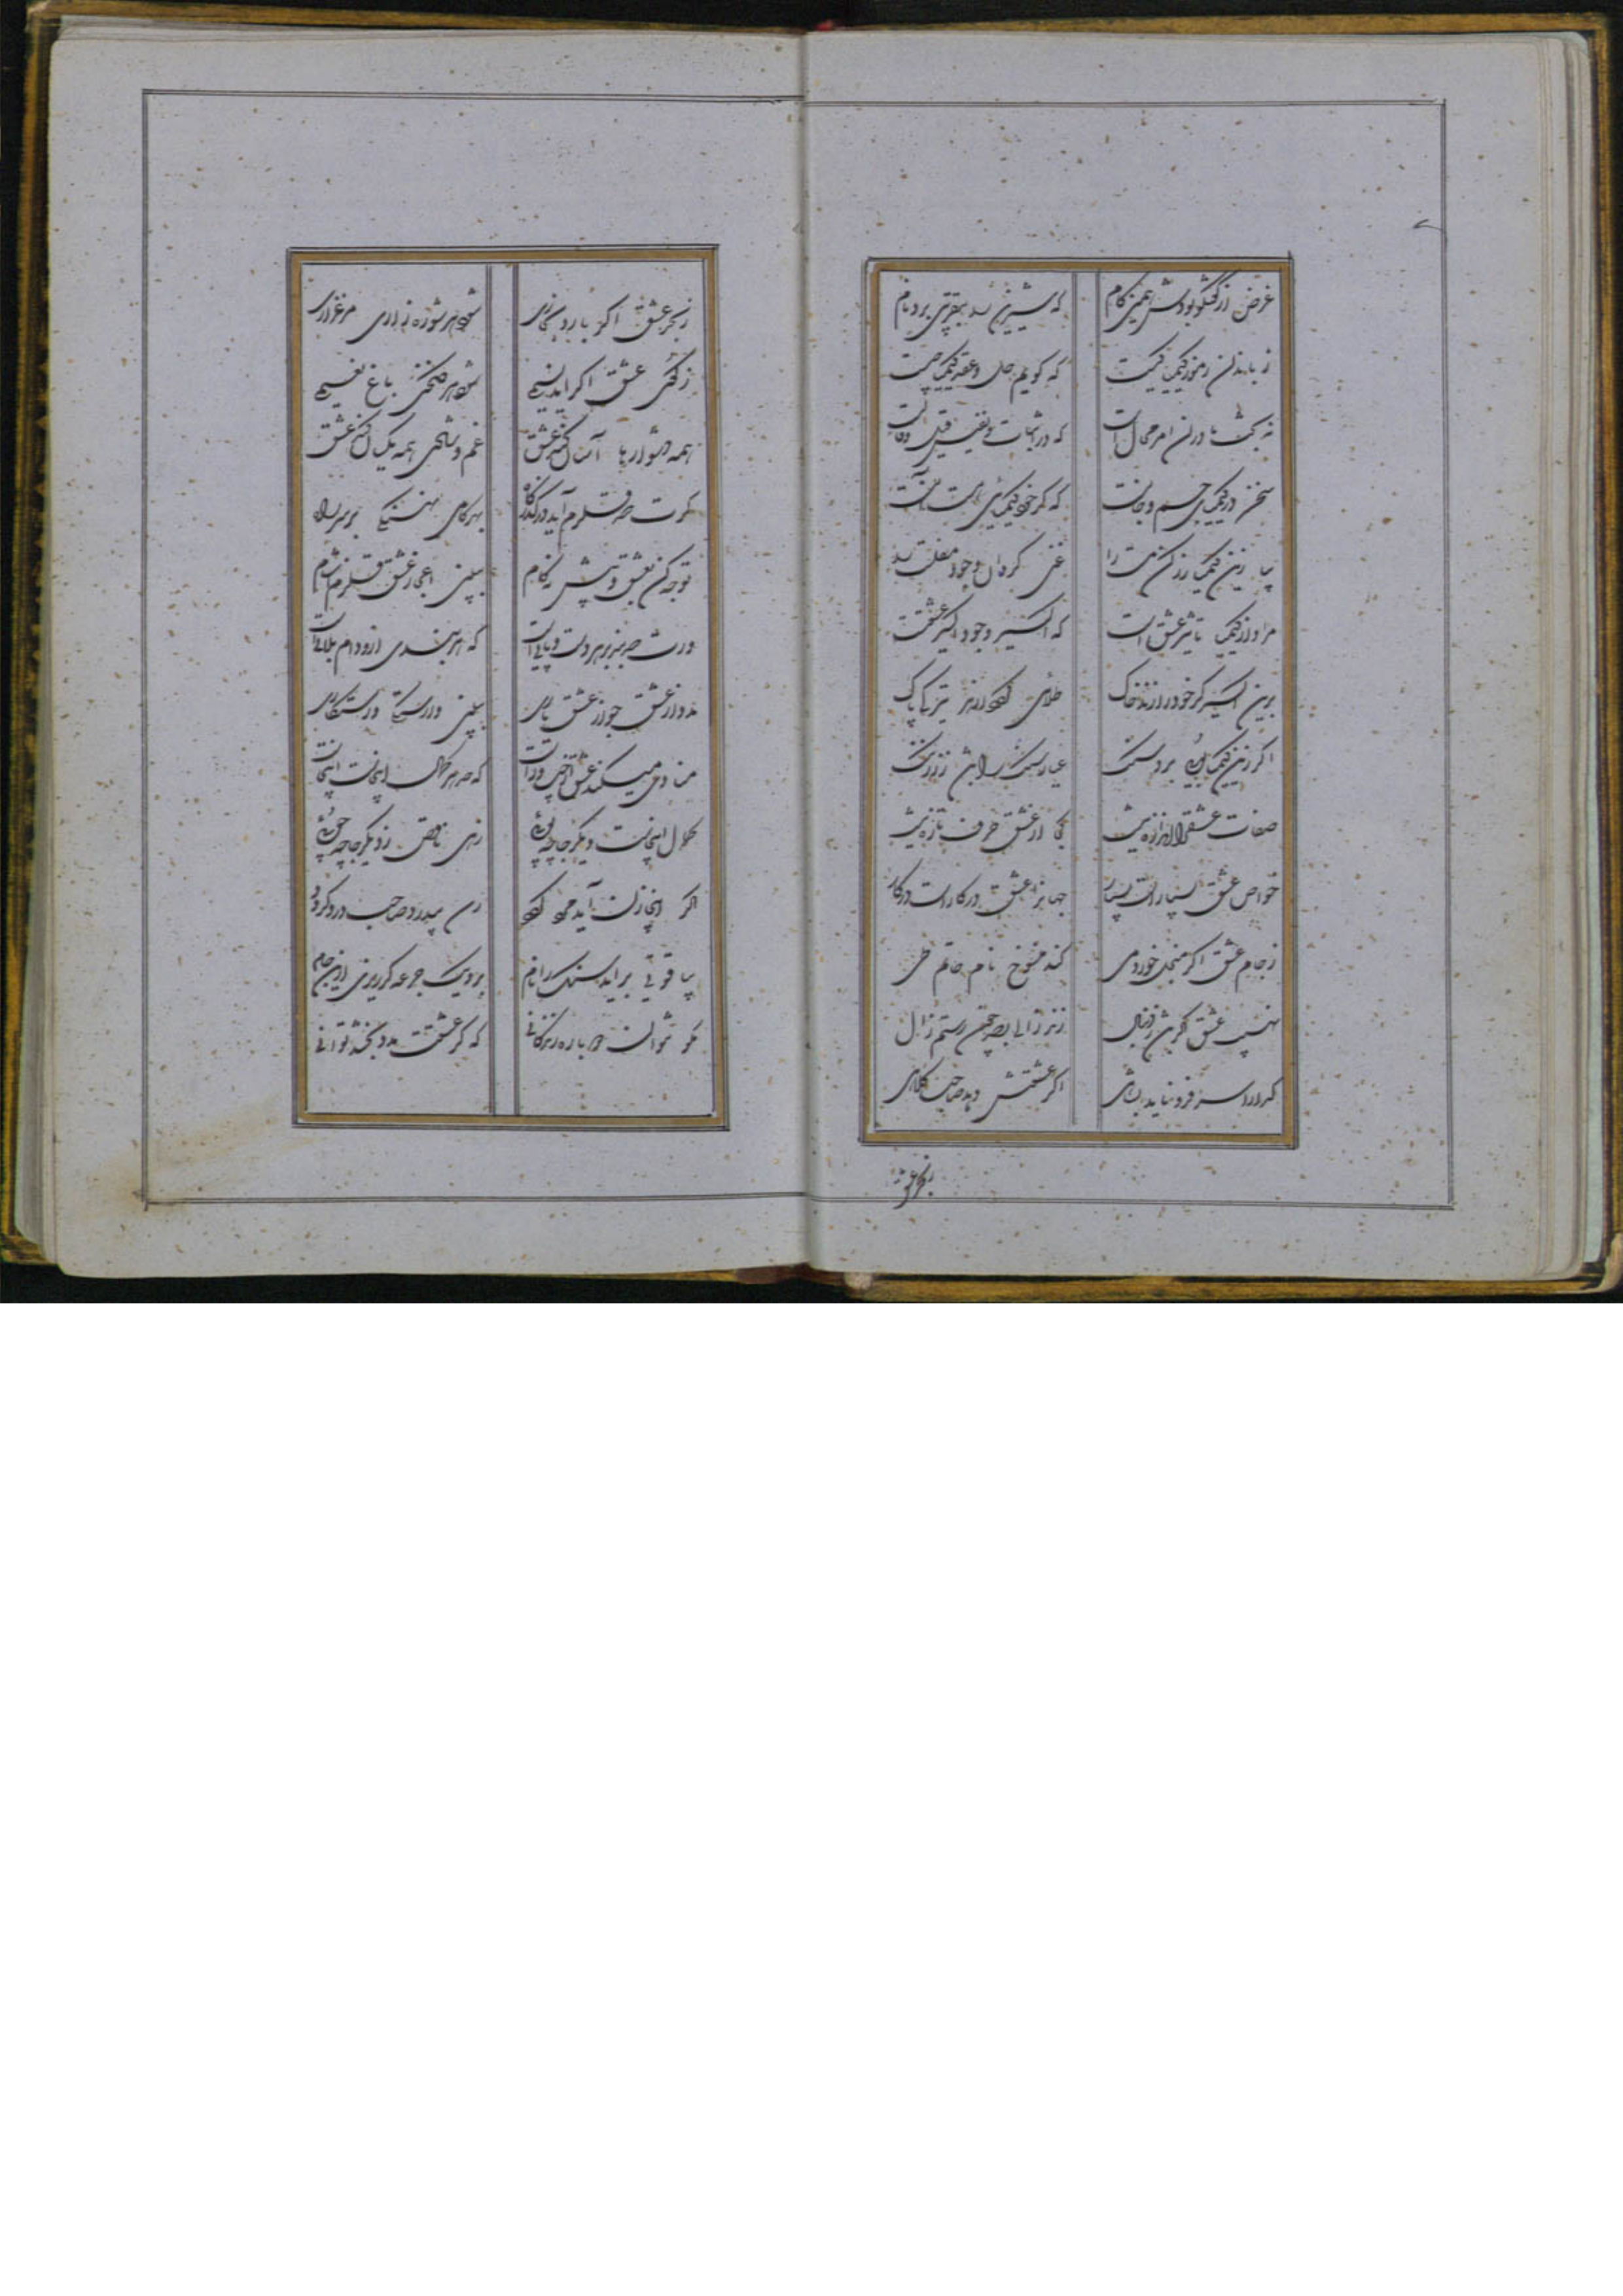 غرض از گفتگو بودش همین کام که شیرین را بتقریبی برد نام
زباندان رموز کیمیا کیست که گویم حل و عقد کیمیا چیست
نه بحث ما در آن امر محال است که در اثبات و نفیش قیل و قالست
سخن در کیمیای جسم و جانست که گر خود کیمیای هست آنست
بیا زین کیمیا زر کن مست را غنی گردان وجود مفلست را
مراد از کیمیا تاثیر عشق است که اکسیر وجود اکسیر عشقست
برین اکسیر گر خود را زند خاک طلای گردد از هر تیرگی پاک
اگر زین کیمیا بوئی برد سنگ عیار سنگ را باشد ز زر ننگ
صفات عشق را اندازه نیست کجا از عشق حرف تازه نیست
خواص عشق بسیار است بسیار جهانرا عشق در کار است در کار
ز جام عشق اگر خورد می کند منسوخ نام حاتم طی
نهیب عشق گر باشد ز دنبال زند زالی بصد چون رستم زال
گدا را سر فرو ناید بشاهی اگر عشقش دهد صاحب کلاهی
ز بحر عشق
ز بحر عشق اگر بارد بخاری شود هر شوره زاری مرغزاری
ز عشق اگر آید نسیمی شود هر گلخنی باغ نعیمی
همه دشوارها آسان کند عشق غم و شادی همه یکسان کند عشق
گرت صد قلزم آید در گذرگاه بهر گامی نهنگی بر سر راه
توجه کن بعشق و پیش نه گام ببین اعجاز عشق قلزم آشام
ورت صد بند بر هر دست و پائیست که هر بندی از او دام بلائیست
مدد از عشق جو از عشق یاری ببین وارستگی و رستگاری
منادی میکند عشق از چپ و راست که حد هر کمال اینجاست اینجاست
کمال اینجاست دیگر جا چه پوئی زهی ناقص ز دیگر جا چه جوئی
اگر اینجا آید صاحب درد گردد
بیاقوتی برآید سنگ را نام برو یک جرعه گر ریزی ازین جام
مگو نتوان دوباره زندگانی که گر عشقت مدد بخشد توانی